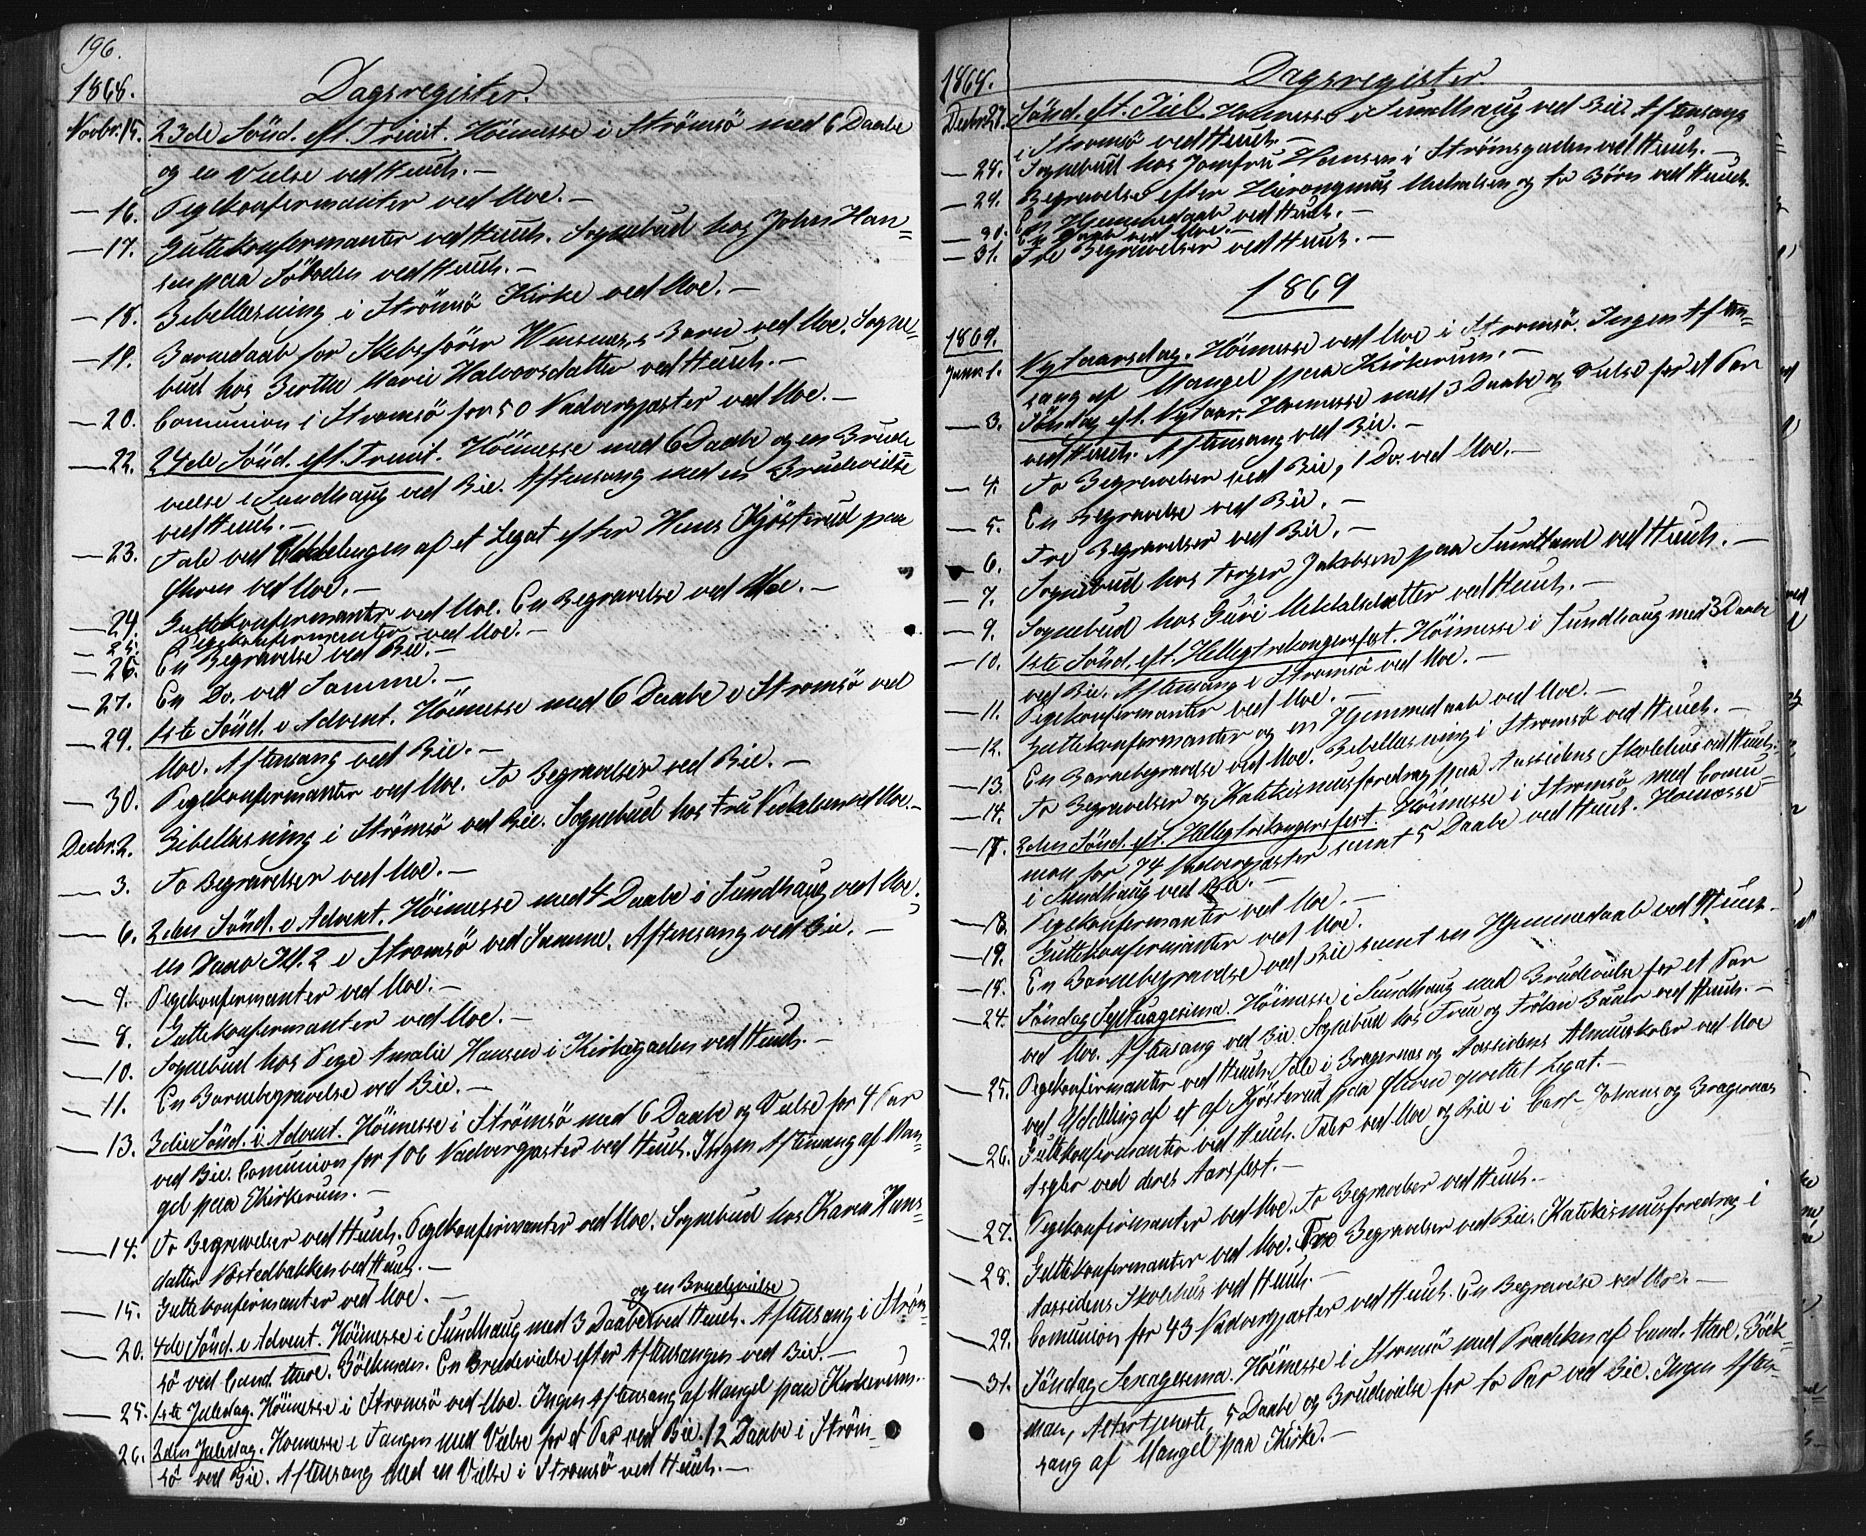 196.
1868. Dagsregister.
Novbr. 15. 23de Sönd. eft. Trinit. Höimesse i Strömsö med 6 Daabe
og en Vielse ved Huuh. —
— 16. Pigekonfirmanter ved Moe. —
— 17. Guttekonfirmanter ved Huuh. Sognebud hos Johan Han-
sen paa ved Huuh. —
— 18. Bibellæsning i Strömsö Kirke ved Moe. —
— 19. Barnedaab for Skibsförer Barn ved Moe. Sogne-
bud hos Berthe Marie Halvorsdatter ved Huuh. —
— 20. Comunion i Strömsö for 50 Nadvergjæster ved Moe. —
— 22. 24de Sönd. eft. Trinit. Höimesse med 6 Daabe og en Brude-
vielse i Sundhaug ved Bie. Aftensang med en Brudevielse
ved Huuh. —
— 23. Tale ved Uddelingen af et Legat efter Hans Kjösterud paa
Øhren ved Moe. —
— 24. Guttekonfirmanter ved Moe. En Begravelse ved Moe. —
— 25. Pigekonfirmanter ved Moe. —
— 26. En Begravelse ved Bie. —
— 27. En Do. ved Samme. —
— 29. 1ste Sönd. i Advent. Höimesse med 6 Daabe i Strömsö ved
Moe. Aftensang ved Bie. —
— 30. Pigekonfirmanter ved Moe. To Begravelser ved Bie. —
Decbr. 2. Bibellæsning i Strömsö ved Bie. Sognebud hos Fru ved Moe. —
— 3. To Begravelser ved Moe. —
— 6. 2den Sönd. i Advent. Höimesse med 4 Daabe i Sundhaug ved Moe,
en Daab Kl. 2 i Strömsö ved Samme. Aftensang ved Bie. —
— 7. Pigekonfirmanter ved Moe. —
— 8. Guttekonfirmanter ved Moe. —
— 10. Sognebud hos Pige Amalie Hansen i Kirkegaden ved Huuh. —
— 11. En Barnebegravelse ved Bie. —
— 13. 3die Sönd. i Advent. Höimesse i Strömsö med 6 Daabe og Vielse for 4 Par
ved Bie. Comunion for 106 Nadvergjæster ved Huuh. Ingen Aftensang af Man-
gel paa Kirkerum. —
— 14. To Begravelser ved Huuh. Pigekonfirmanter ved Moe. Sognebud hos Karen Hans-
datter Næstedbakken ved Huuh. —
— 15. Guttekonfirmanter ved Moe. —
og en Brudevielse
— 20. 4de Sönd. i Advent. Höimesse i Sundhaug med 3 Daabe ved Huuh. Aftensang i Ström-
sö ved Cand. theol. En Brudevielse efter Aftensangen ved Bie. —
— 25. 1ste Juledag. Höimesse i Strömsö ved Moe. Ingen Aftensang af Mangel paa Kirkerum. —
26. 2den Juledag. Höimesse i Tangen med Vielse for et Par ved Bie. 12 Daabe i Ström-
sö ved Bie. Aftensang med en Vielse i Strömsö ved Huuh. —
1868. Dagsregister
Decbr 27. Sönd. eft. Jul. Höimesse i Sundhaug ved Bie. Aftensang
i Strömsö ved Huuh. —
— 28. Sognebud hos Jomfru Hansen i Strömsgaden ved Huuh. —
— 29. Begravelse efter Hieronymus Michaelsen og to Börn ved Huuh.
En Hjemmedaab ved Huuh. —
— 30. En Daab ved Moe. —
— 31. Tre Begravelser ved Huuh. —
1869
1869.
Januar 1. Nytaarsdag. Höimesse ved Moe i Strömsö. Ingen Aften-
sang af Mangel paa Kirkerum. —
— 3. Söndag eft. Nytaar. Höimesse med 3 Daabe og Vielse for et Par
ved Huuh. Aftensang ved Bie. —
— 4. To Begravelser ved Bie, 1 Do. ved Moe. —
— 5. En Begravelse ved Bie. —
— 6. Tre Begravelser ved Bie. —
— 7. Sognebud hos Torger Jakobsen paa Sundland ved Huuh. —
— 9. Sognebud hos Guri Mikkelsdatter ved Huuh. —
— 10. 1ste Sönd. eft. Helligtrekongersfest. Höimesse i Sundhaug med 3 Daabe
ved Bie. Aftensang i Strömsö ved Moe. —
— 11. Pigekonfirmanter ved Moe. —
— 12. Guttekonfirmanter og en Hjemmedaab ved Moe. —
— 13. En Barnebegravelse ved Moe. Bibellæsning i Strömsö ved Huuh. —
— 14. To Begravelser og Katekismusforedrag paa Aassidens Skolehus ved Huuh. —
— 17. 2den Sönd. eft. Helligtrekongersfest. Höimesse i Strömsö med Comu-
nion for 74 Nadvergjæster samt 5 Daabe ved Huuh. Höimesse
i Sundhaug ved Bie. —
— 18. Pigekonfirmanter ved Moe. —
— 19. Guttekonfirmanter ved Moe.
— 19. En Barnebegravelse ved Bie samt en Hjemmedaab ved Huuh. —
— 24. Söndag Septuagesima. Höimesse i Sundhaug med Brudevielse for et Par
ved Moe. Aftensang ved Bie. Sognebud hos Frue og Fröken ved Huuh. —
— 25. Pigekonfirmanter ved Huuh. Tale i Bragernæs og Aassidens Almueskoler ved Moe
ved Uddeling af et af Kjösterud paa Øhren oprettet Legat. —
— 26. Guttekonfirmanter ved Huuh. Taler ved Moe og Bie i Carl-Johans og Bragernæs
ved deres Aarsfest. —
— 27. Pigekonfirmanter ved Moe. To Begravelser ved Huuh. —
— 28. Guttekonfirmanter ved Moe. Tre Begravelser ved Bie. Katekismusforedrag i
Aassidens Skolehus ved Huuh. —
— 29. Comunion for 43 Nadvergjæster ved Huuh. En Begravelse ved Moe. —
— 31. Söndag Sexagesima. Höimesse i Strömsö med Prædiken af Cand.
man, Altertjeneste, 5 Daabe og Brudevielse for to Par ved Bie. Ingen Aften-
sang af Mangel paa Kirke. —